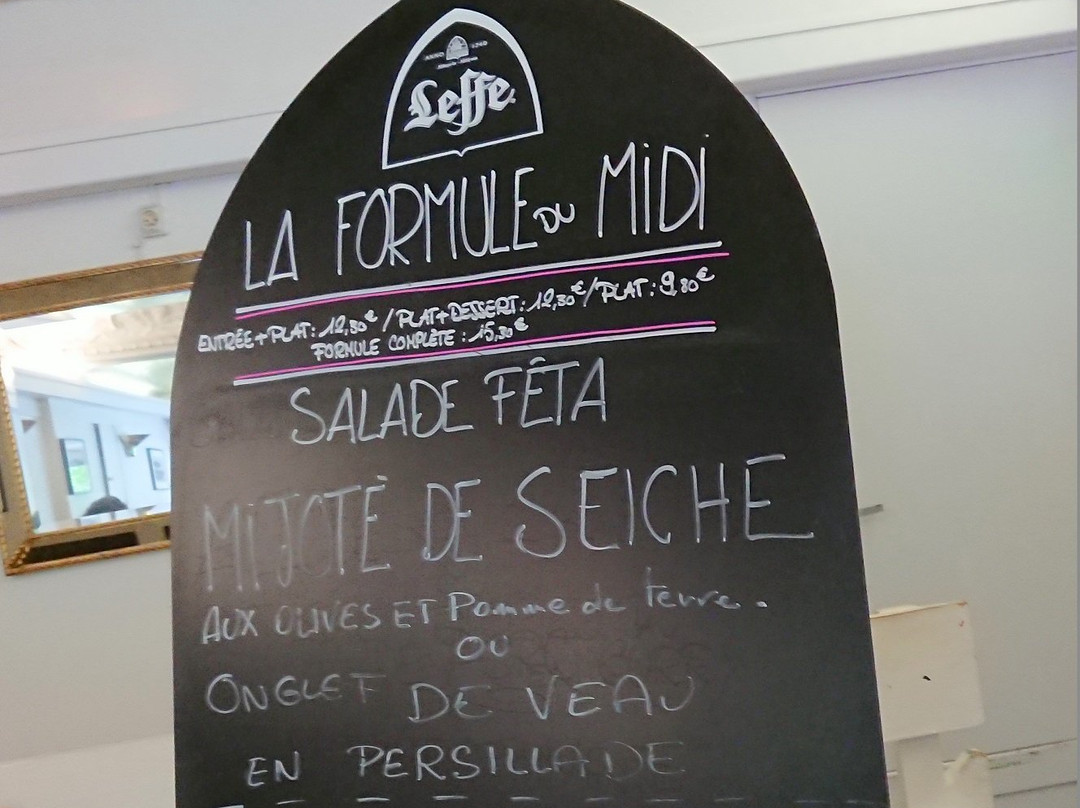 ANNO 1240
Leffe
LA FORMULE DU MIDI
ENTRÉE+PLAT: 12,80€ / PLAT+DESSERT: 12,80€ / PLAT: 9,80€
FORMULE COMPLÈTE: 15,80€
SALADE FÊTA
MIJOTÉ DE SEICHE
AUX OLIVES ET Pomme de terre.
OU
ONGLET DE VEAU
EN PERSILLADE